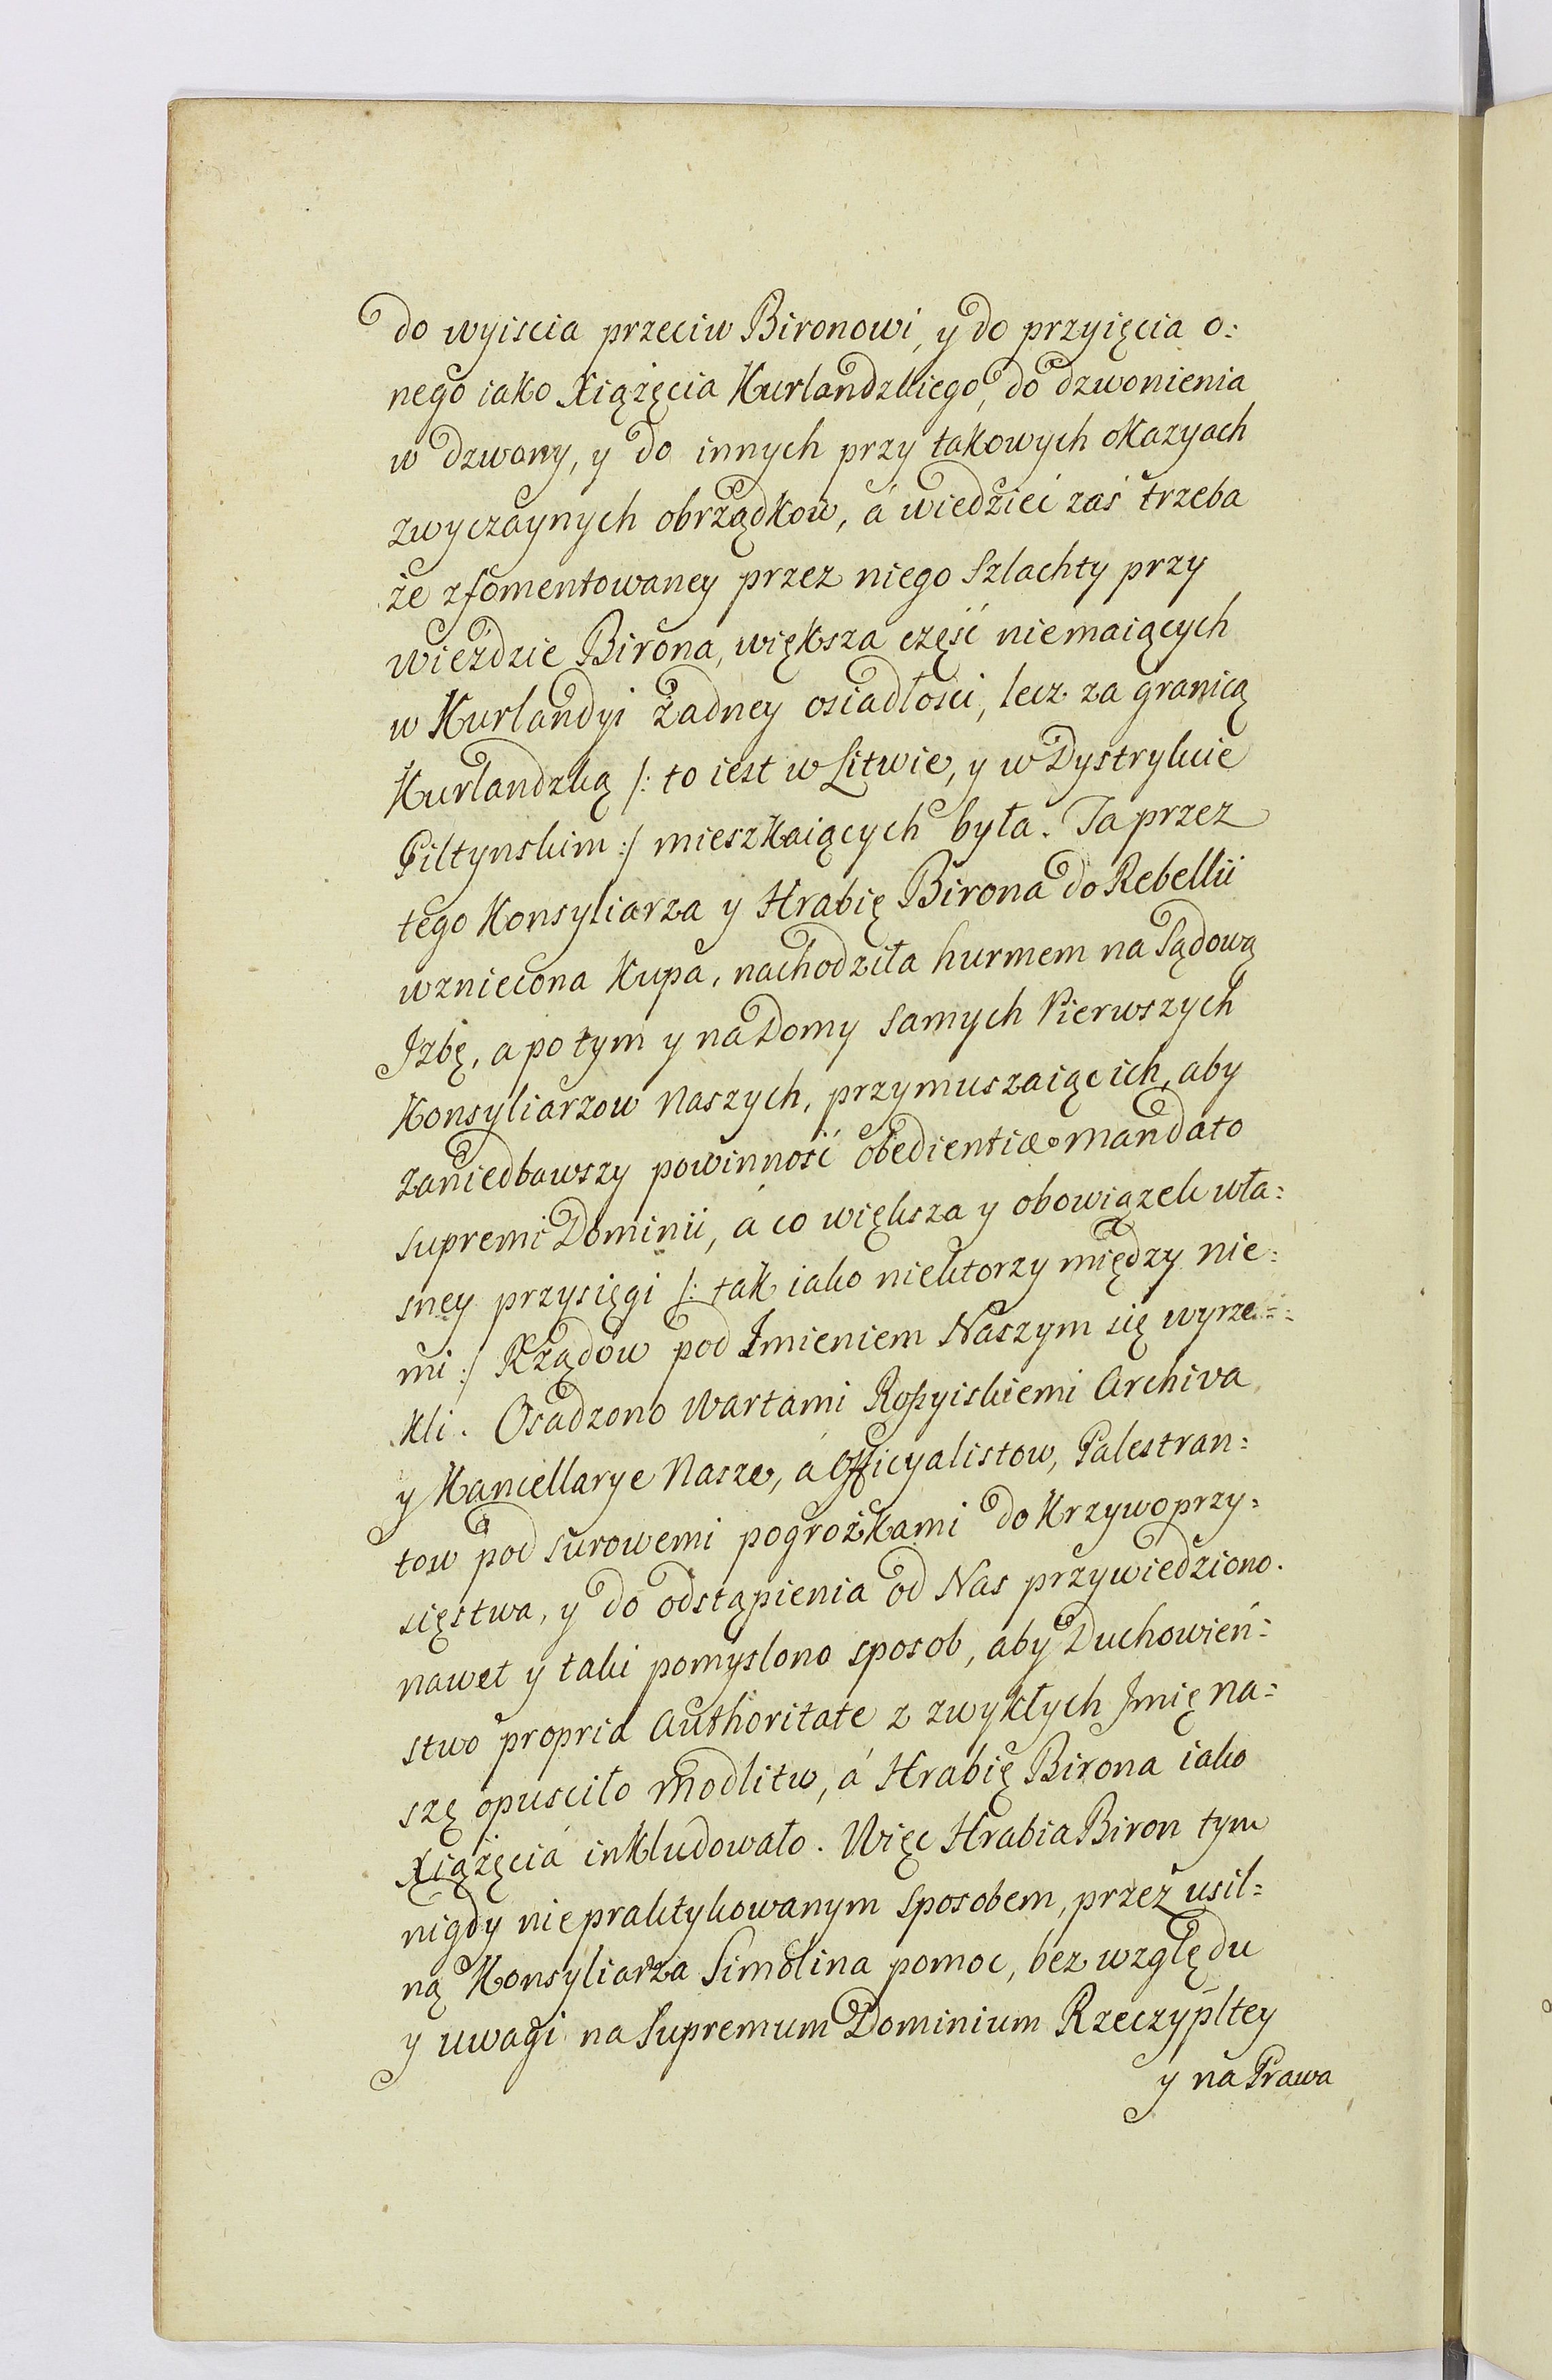 do wyiscia przeciw Bironowi, y do przyięcia o:
nego iako Xiążęcia Kurlandzkiego, do dzwonienia
w dzwony, y do innych przy takowych okazyach
zwyczaynych obrządkow, á wiedzieć zaś trzeba
że zfomentowaney przez niego Szlachty przy
wieździe Birona, większa część niemaiących
w Kurlandyi żadney osiadłości, lecz za granicą
Kurlandzką /: to iest w Litwie, y w Dystrykcie
Piltynskim :/ mieszkaiących była. Ta przez
tego Konsyliarza y Hrabię Birona do Rebellii
wzniecona Kupa, nachodziła hurmem na Sądową
Izbę, a po tym y na Domy samych Pierwszych
Konsyliarzow Naszych, przymuszaiąc ich, aby
zaniedbawszy powinność obedientiæ mandato
supremi Dominii, á co większa y obowiązek wła:
sney przysięgi /: tak iako niektorzy między nie:
mi :/ Rządow pod Imieniem Naszym się wyrze:
kli. Osadzono Wartami Roßyiskiemi Archiva
y Kancellarye Nasze, á Officyalistow, Palestran:
tow pod surowemi pogrożkami do Krzywoprzy:
sięstwa, y do odstąpienia od Nas przywiedziono.
nawet y taki pomyslono sposob, aby Duchowień:
stwo propria Authoritate z zwykłych Imię na:
szę opusciło modlitw, á Hrabię Birona iako
Xiążęcia inkludowało. Więc Hrabia Biron tym
nigdy niepraktykowanym sposobem, przez usil:
ną Konsyliarza Simolina pomoc, bez względu
y uwagi na Supremum Dominium Rzeczypltey
y na Prawa